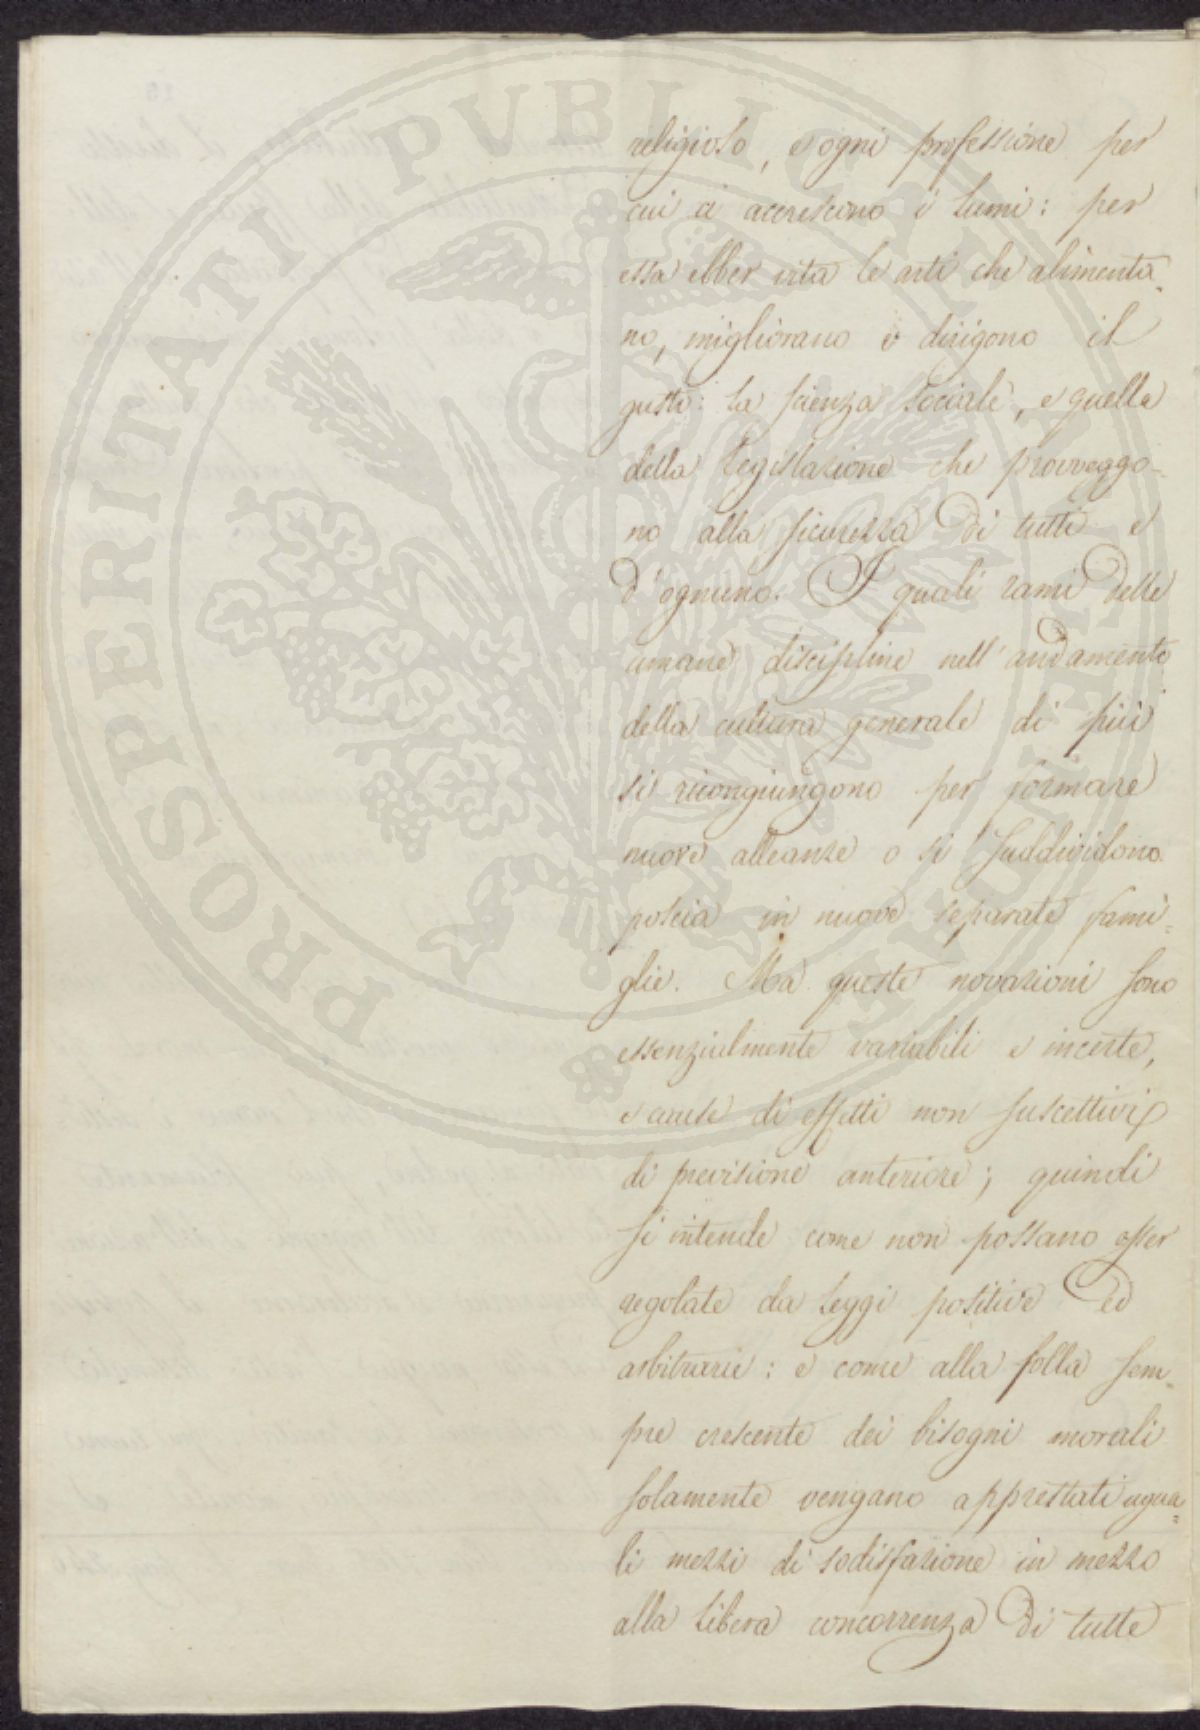 PROSPERITATI PUBLICAE AUGENDAE
religioso, e ogni professione per
cui ci accrescono i lumi: per
essa ebber vita le arti che alimenta-
no, migliorano e dirigono il
gusto: la scienza sociale, e quella
della legislazione che provveggo-
no alla sicurezza di tutti e
d'ognuno. I quali rami delle
umane discipline nell'andamento
della cultura generale di più
si ricongiungono per formare
nuove alleanze o si suddividono
poscia in nuove separate fami=
glie. Ma queste novazioni sono
essenzialmente variabili e incerte,
e cause di effetti non suscettivi
di previsione anteriore; quindi
si intende come non possano esser
regolate da leggi positive ed
arbitrarie: e come alla folla sem-
pre crescente dei bisogni morali
solamente vengano apprestati ugua=
li mezzi di sodisfazione in mezzo
alla libera concorrenza di tutte